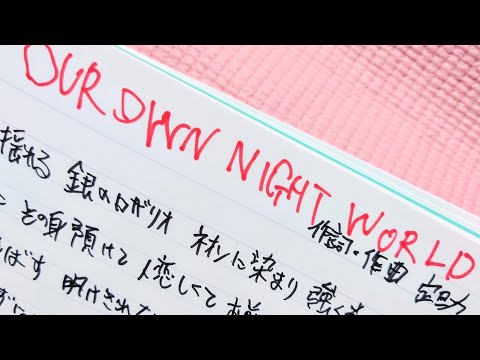 OUR OWN NIGHT WORLD
作詞・作曲
揺れる 銀のロザリオ ネオンに染まり 強く
その身預けて 人恋しくて
ばす 明けきれな